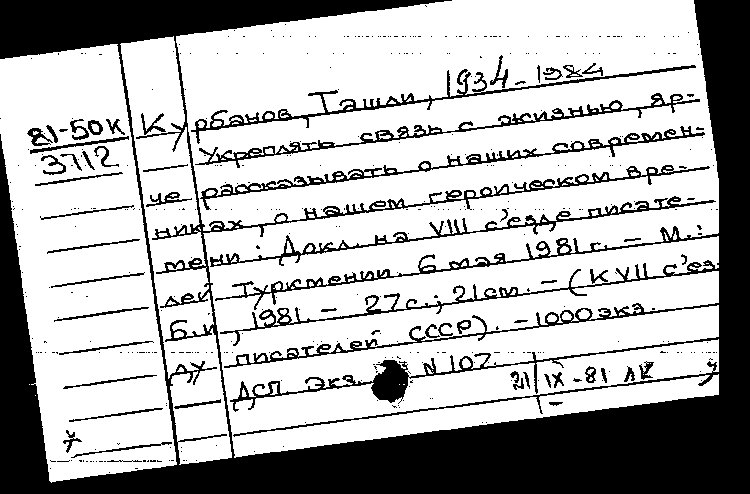 81-50К
3712
Курбанов, Ташли, 1934-1984
Укреплять связь с жизнью, яр-
че рассказывать о наших современ-
никах, о нашем героическом вре-
мени: Докл. на VIII с'езде писате-
лей Туркмении. 6 мая 1981 г. - М.:
Б.и., 1981. - 27 с.; 21 см. - (К VII с'ез-
ду писателей СССР). - 1000 экз.
ДСП. Экз. N 107.
21/IX-81